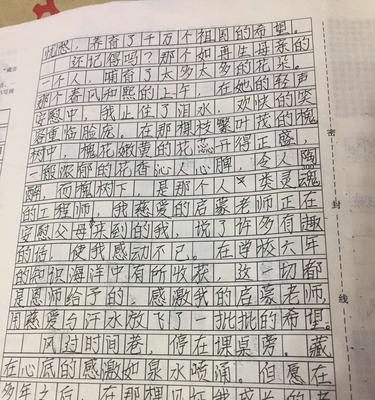 抚慰，养育了千万个祖国的希望。
还记得吗？那个如再生母亲的
一个人，哺育了太多太多的花朵。
那个春风和熙的上午，在她的轻声
安慰中，我止住了泪水，欢快的笑
容重临脸庞。在那棵枝繁叶茂的槐
树中，槐花嫩黄的花蕊开得正盛，
一股浓郁的花香沁人心脾，令人陶
醉，而槐树下，是那个人类灵魂
的工程师，我慈爱的启蒙老师正在
安慰父母未到的我，说了许多有趣
的话，使我感动不已。在学校六年
的知识海洋中有所收获，这一切都
是恩师给予的。感激我的启蒙老师，
用慈爱与汗水放飞了一批批的希望。
风过时间老，停在课桌旁。藏
在心底的感激如泉水喷涌。但愿在
多年之后，在那
密
封
线